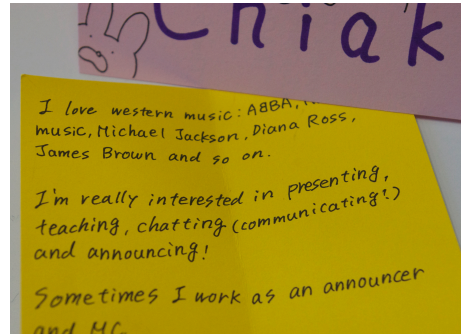 Chiak
I love western music: ABBA,
music, Michael Jackson, Diana Ross,
James Brown and so on.
I'm really interested in presenting,
teaching, chatting (communicating!?)
and announcing!
Sometimes I work as an announcer
and MC